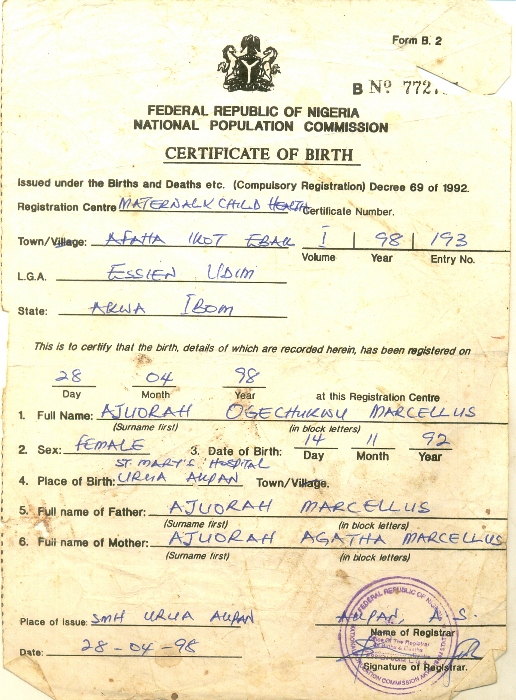 Form B. 2
B No 772
FEDERAL REPUBLIC OF NIGERIA
NATIONAL POPULATION COMMISSION
CERTIFICATE OF BIRTH
Issued under the Births and Deaths etc. (Compulsory Registration) Decree 69 of 1992.
Registration Centre MATERNAL & CHILD HEALTH Certificate Number.
Town/Village: AFAHA IKOT EBAK I 98 193
Volume Year Entry No.
L.G.A. ESSIEN UDIM
State: AKWA IBOM
This is to certify that the birth, details of which are recorded herein, has been registered on
28 04 98
Day Month Year at this Registration Centre
1. Full Name: AJUORAH OGECHUKWU MARCELLUS
(Surname first) (in block letters)
2. Sex: FEMALE 3. Date of Birth: 14 11 92
Day Month Year
ST. MARY'S HOSPITAL
4. Place of Birth: URUA AKPAN Town/Village.
5. Full name of Father: AJUORAH MARCELLUS
(Surname first) (in block letters)
6. Full name of Mother: AJUORAH AGATHA MARCELLUS
(Surname first) (in block letters)
Place of Issue: SMH URUA AKPAN AKPAN, A. S.
Name of Registrar
Date: 28-04-98
Signature of Registrar.
FEDERAL REPUBLIC OF NIGERIA